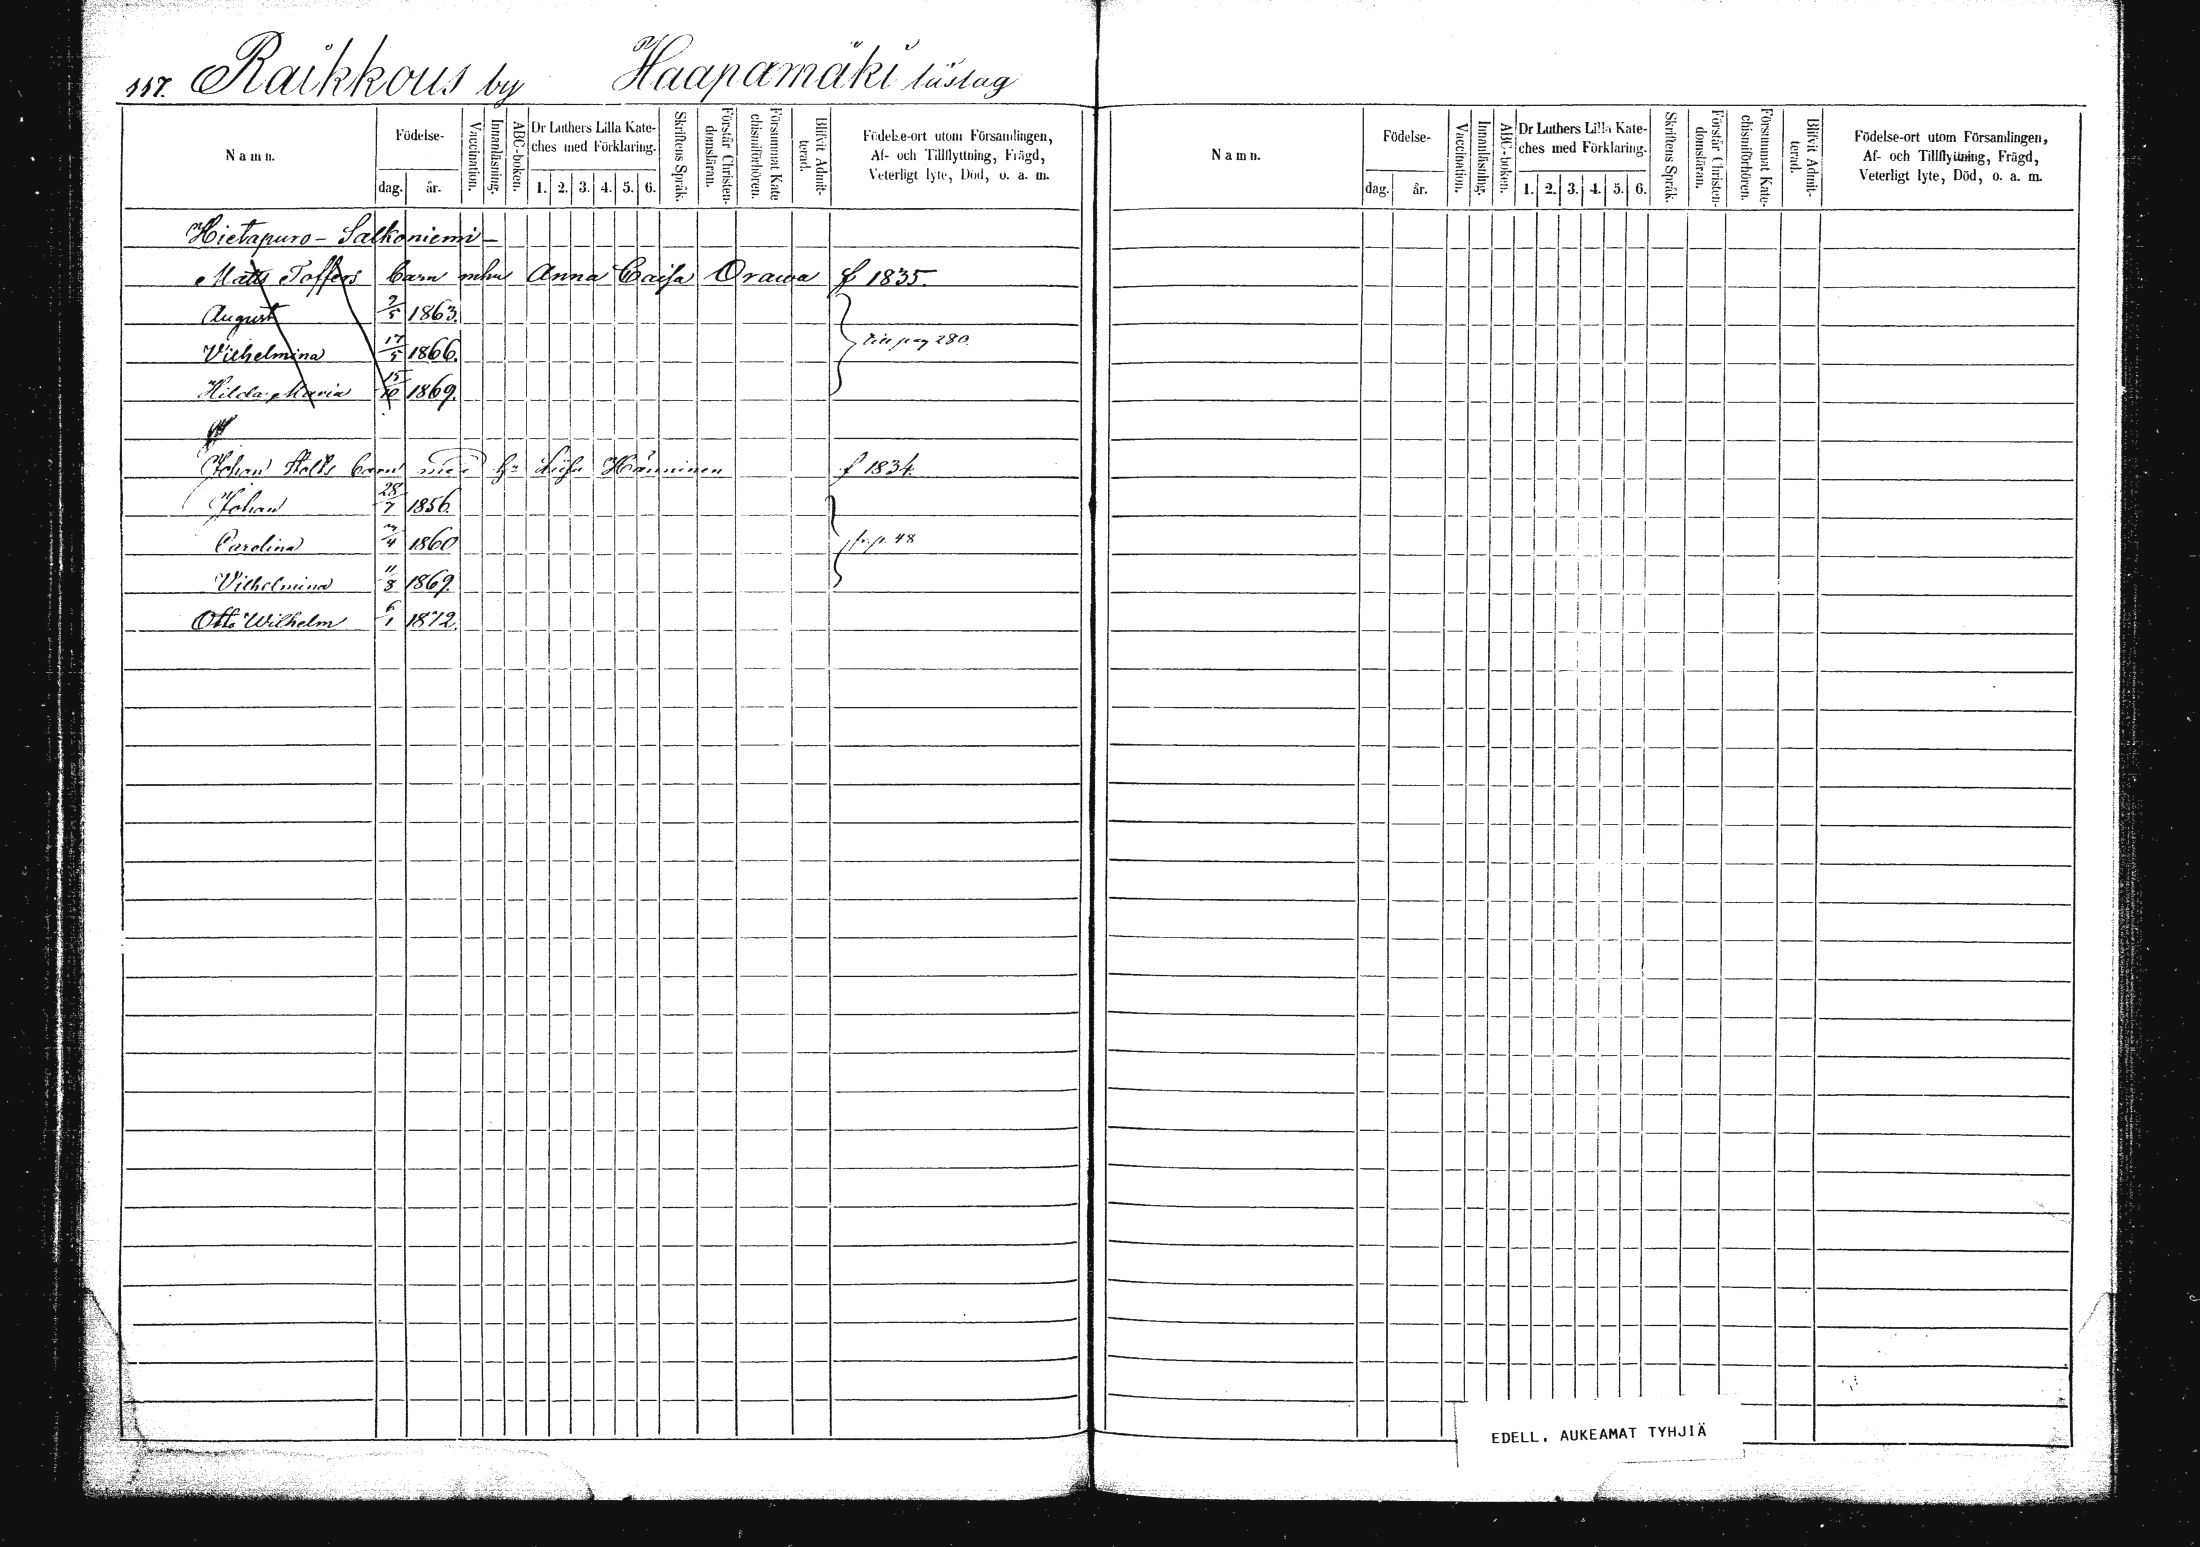 117. Raikkous by Haapamäki läslag
Namn.
Födelse-
dag.
år.
Vaccination.
Innanläsning.
ABC-boken.
Dr Luthers Lilla Kate-
ches med Förklaring.
1. 2. 3. 4. 5. 6.
Skriftens Språk.
Förstår Christen-
domsläran.
Försummat Kate
chismiförhören.
Blifvit Admit-
terad.
Födelse-ort utom Församlingen,
Af- och Tillflyttning, Frägd,
Veterligt lyte, Död, o. a. m.
Namn.
Födelse-
dag.
år.
Vaccination.
Innanläsning.
ABC-boken.
Dr Luthers Lilla Kate-
ches med Förklaring.
1. 2. 3. 4. 5. 6.
Skriftens Språk.
Förstår Christen-
domsläran.
Försummat Kate-
chismiförhören.
Blifvit Admit-
terad.
Födelse-ort utom Församlingen,
Af- och Tillflyttning, Frägd,
Veterligt lyte, Död, o. a. m.
Hietapuro - Salkoniemi -
Matts Toffers barn mhu Anna Caisa Orawa f 1835.
August 9/5 1863.
Vilhelmina 17/5 1866. till pag 280.
Hilda Maria 15/10 1869.
Johan barn Hänninen f 1834.
Johan 28/7 1856
Carolina 1860 fr. p. 48
Vilhelmina 11/8 1869.
Otto Wilhelm 6/1 1872.
EDELL. AUKEAMAT TYHJIÄ